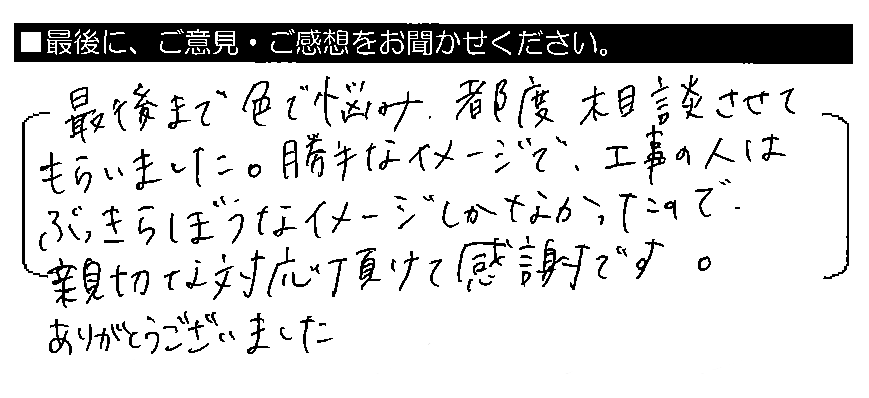 ■最後に、ご意見・ご感想をお聞かせください。
最後まで色で悩み、都度相談させて
もらいました。勝手なイメージで、工事の人は
ぶっきらぼうなイメージしかなかったので、
親切な対応頂けて感謝です。
ありがとうございました